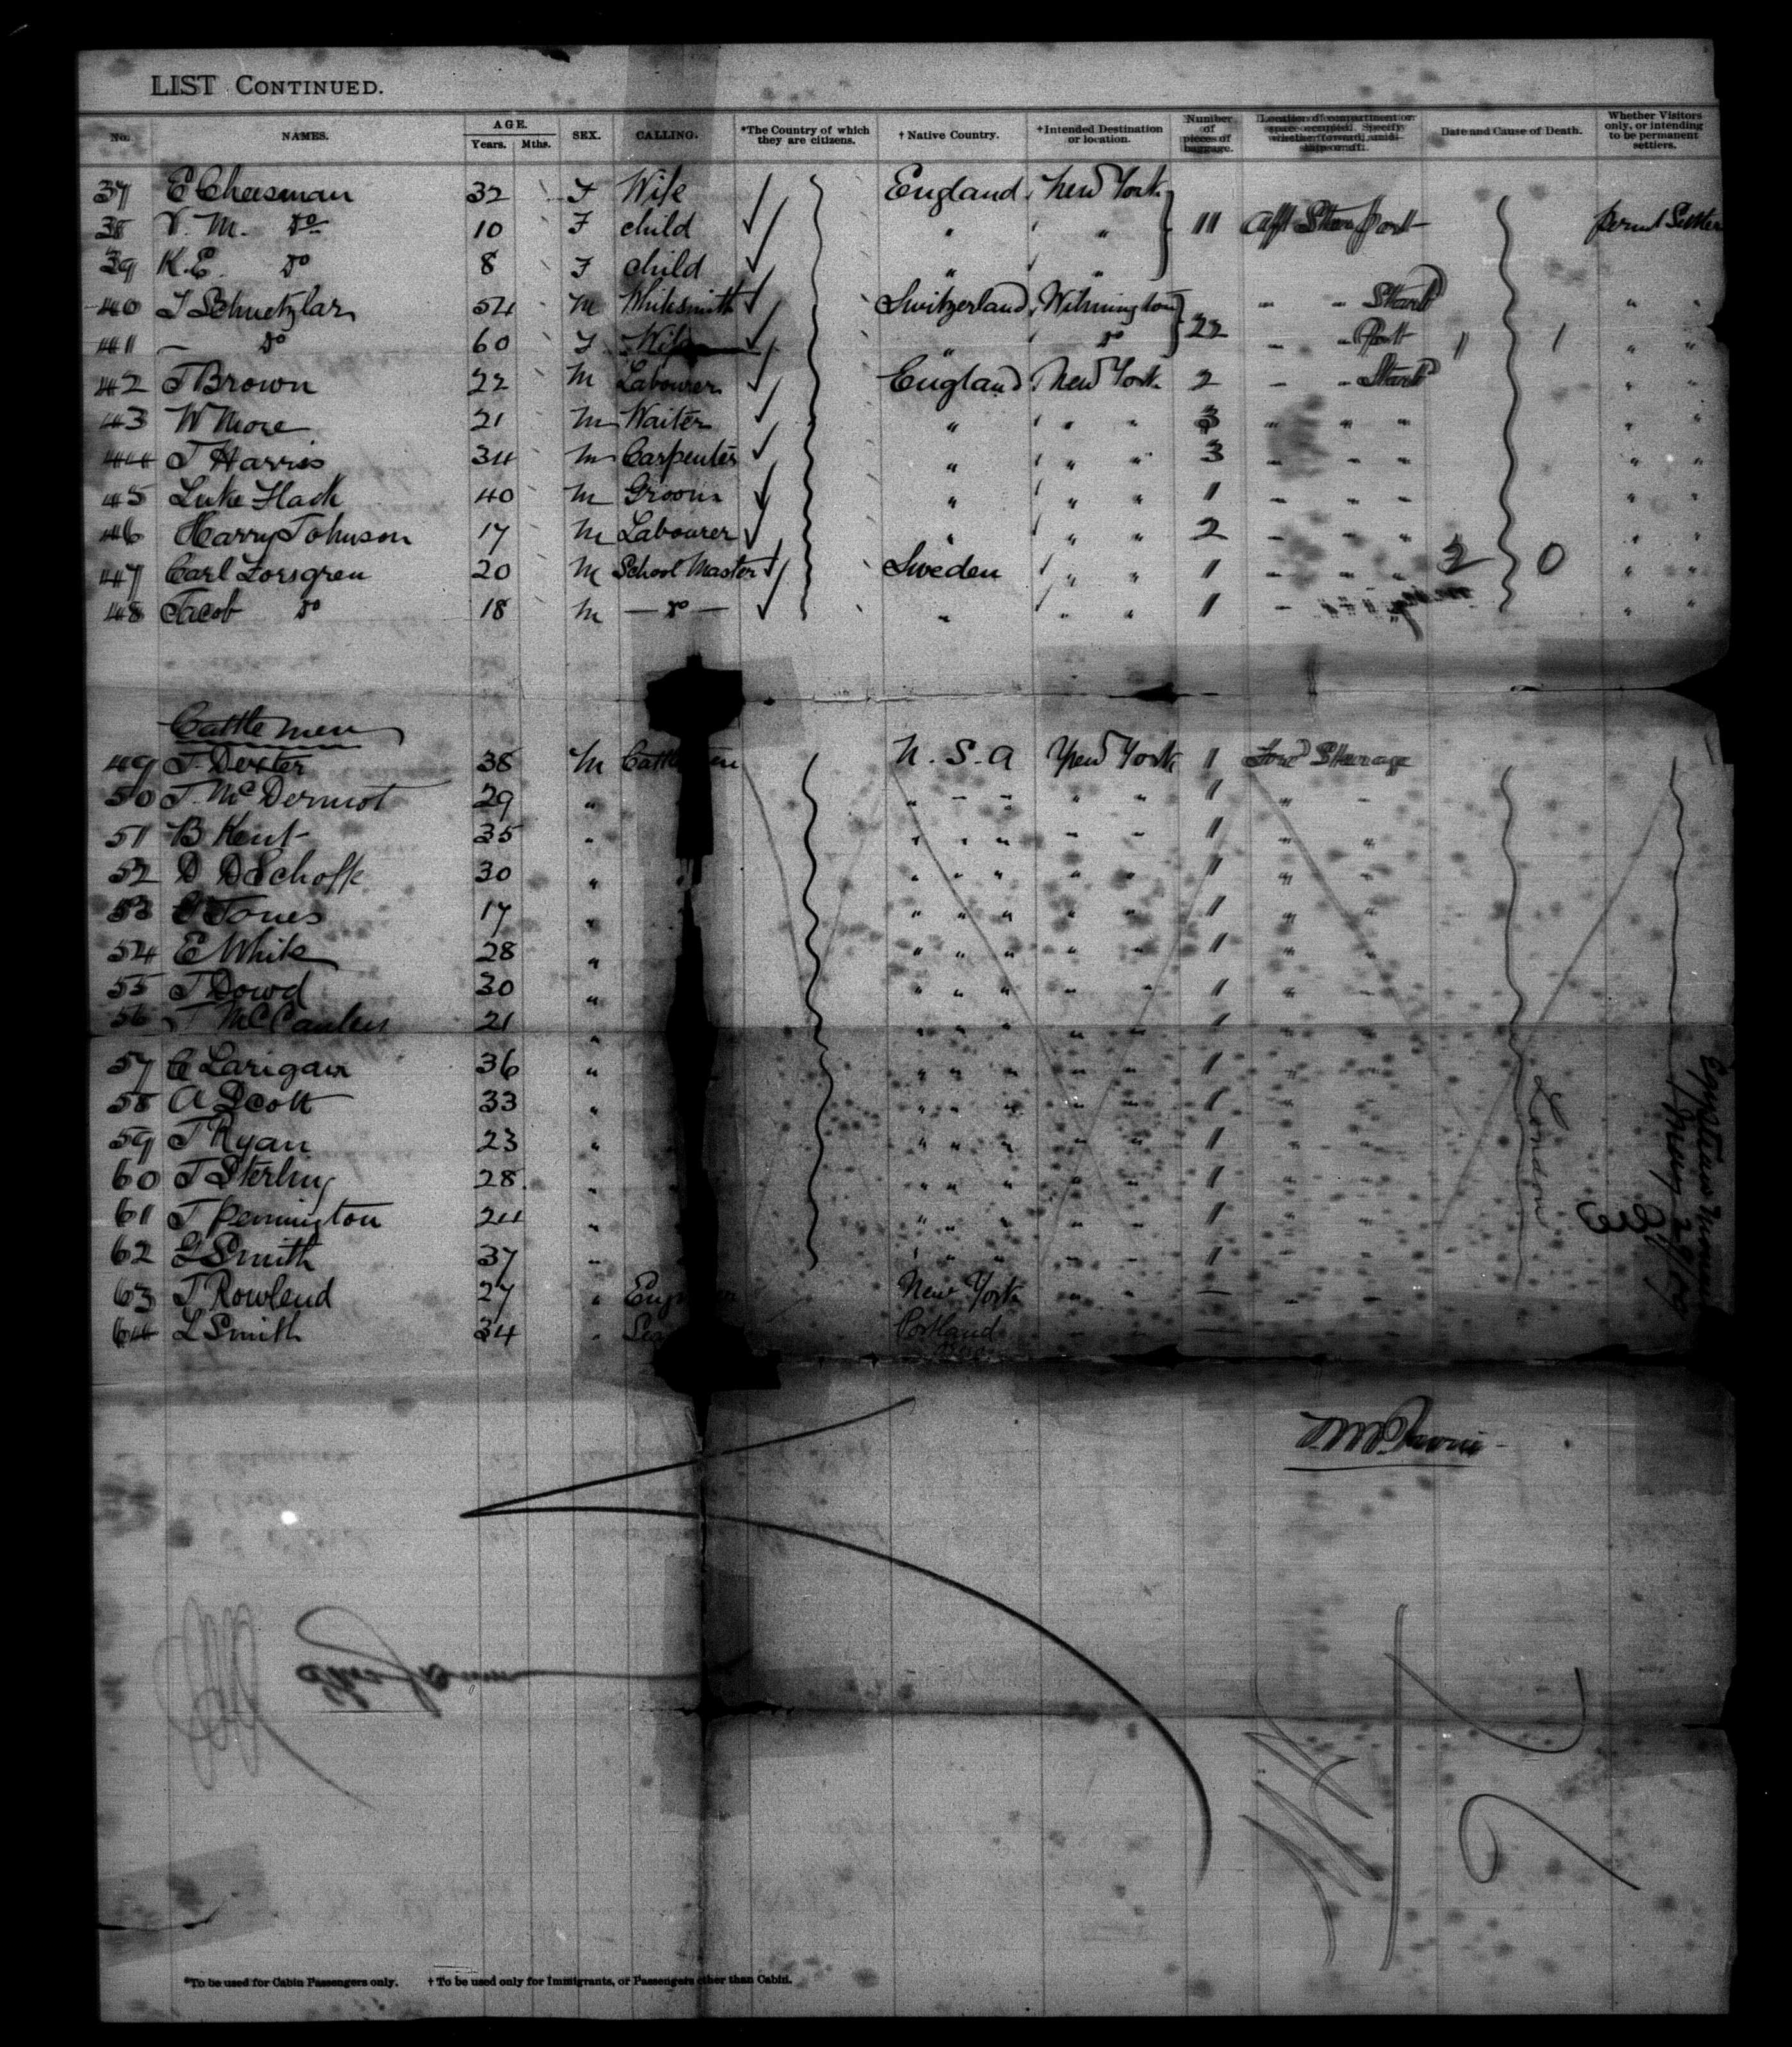 LIST CONTINUED.
No. NAMES. AGE. Years. Mths. SEX. CALLING. *The Country of which they are citizens. † Native Country. † Intended Destination or location. Number of pieces of baggage. Location of compartment or space occupied. Specify whether forward, amidships or aft. Date and Cause of Death. Whether Visitors only, or intending to be permanent settlers.
37 E Cheesman 32 F Wife England New York
38 V. M. do 10 F child " " 11 Aft Port
39 K. E. do 8 F child " "
40 J Schuetzlar 54 M Whitesmith Switzerland Wilmington " " Starb " "
41 — do 60 F Wife " do 22 " " Port 11 1 " "
42 J Brown 22 M Labourer England New York 2 " " Starb " "
43 W More 21 M Waiter " " " 3 " " " " "
44 J Harris 34 M Carpenter " " " 3 " " " " "
45 Luke Flack 40 M Groom " " " 1 " " " " "
46 Harry Johnson 17 M Labourer " " " 2 " " " " "
47 Carl Forsgren 20 M School Master Sweden " " 1 " " " 2 0 " "
48 Jacob do 18 M — do — " " " 1 " " "
Cattlemen
49 J. Dexter 38 M U. S. A New York 1 Forw Steerage
50 J. McDermot 29 " " " " " " 1 " "
51 B Kent 35 " " " " " " 1 " "
52 D 30 " " " " " " 1 " "
53 Jones 17 " " " " " " 1 " "
54 E White 28 " " " " " " 1 " "
55 J Dowd 30 " " " " " " 1 " "
56 J 21 " " " " " " 1 " "
57 C Larigan 36 " " " " " " 1 " "
58 A Scott 33 " " " " " " 1 " "
59 J Ryan 23 " " " " " " 1 " "
60 J Sterling 28 " " " " " " 1 " "
61 J Pennington 24 " " " " " " 1 " "
62 G Smith 37 " " " " " " 1 " "
63 J Rowland 27 " New York " " — " "
64 L Smith 34 " Portland " "
London
*To be used for Cabin Passengers only. † To be used only for Immigrants, or Passengers other than Cabin.